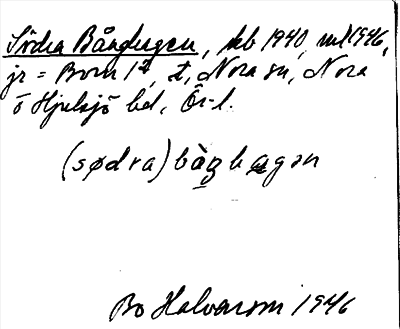 Södra Bånghagen, kb 1940, ml 1946,
jr = Born 1⁴, t, Nora sn, Nora
o Hjulsjö bd, Ör. l.
(sødra) bàŋhagən
Bo Halvarson 1946